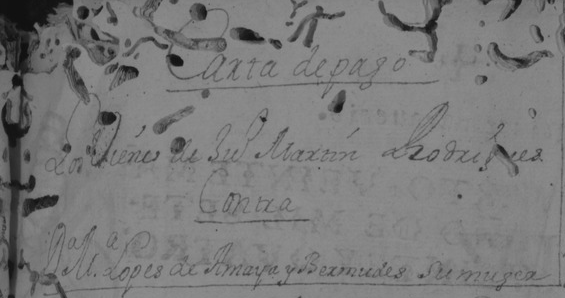 Carta de pago
Los Vienes de Martin Rodrigues
Contra
D.a M.a Lopes de Amaya y Bermudes su muger